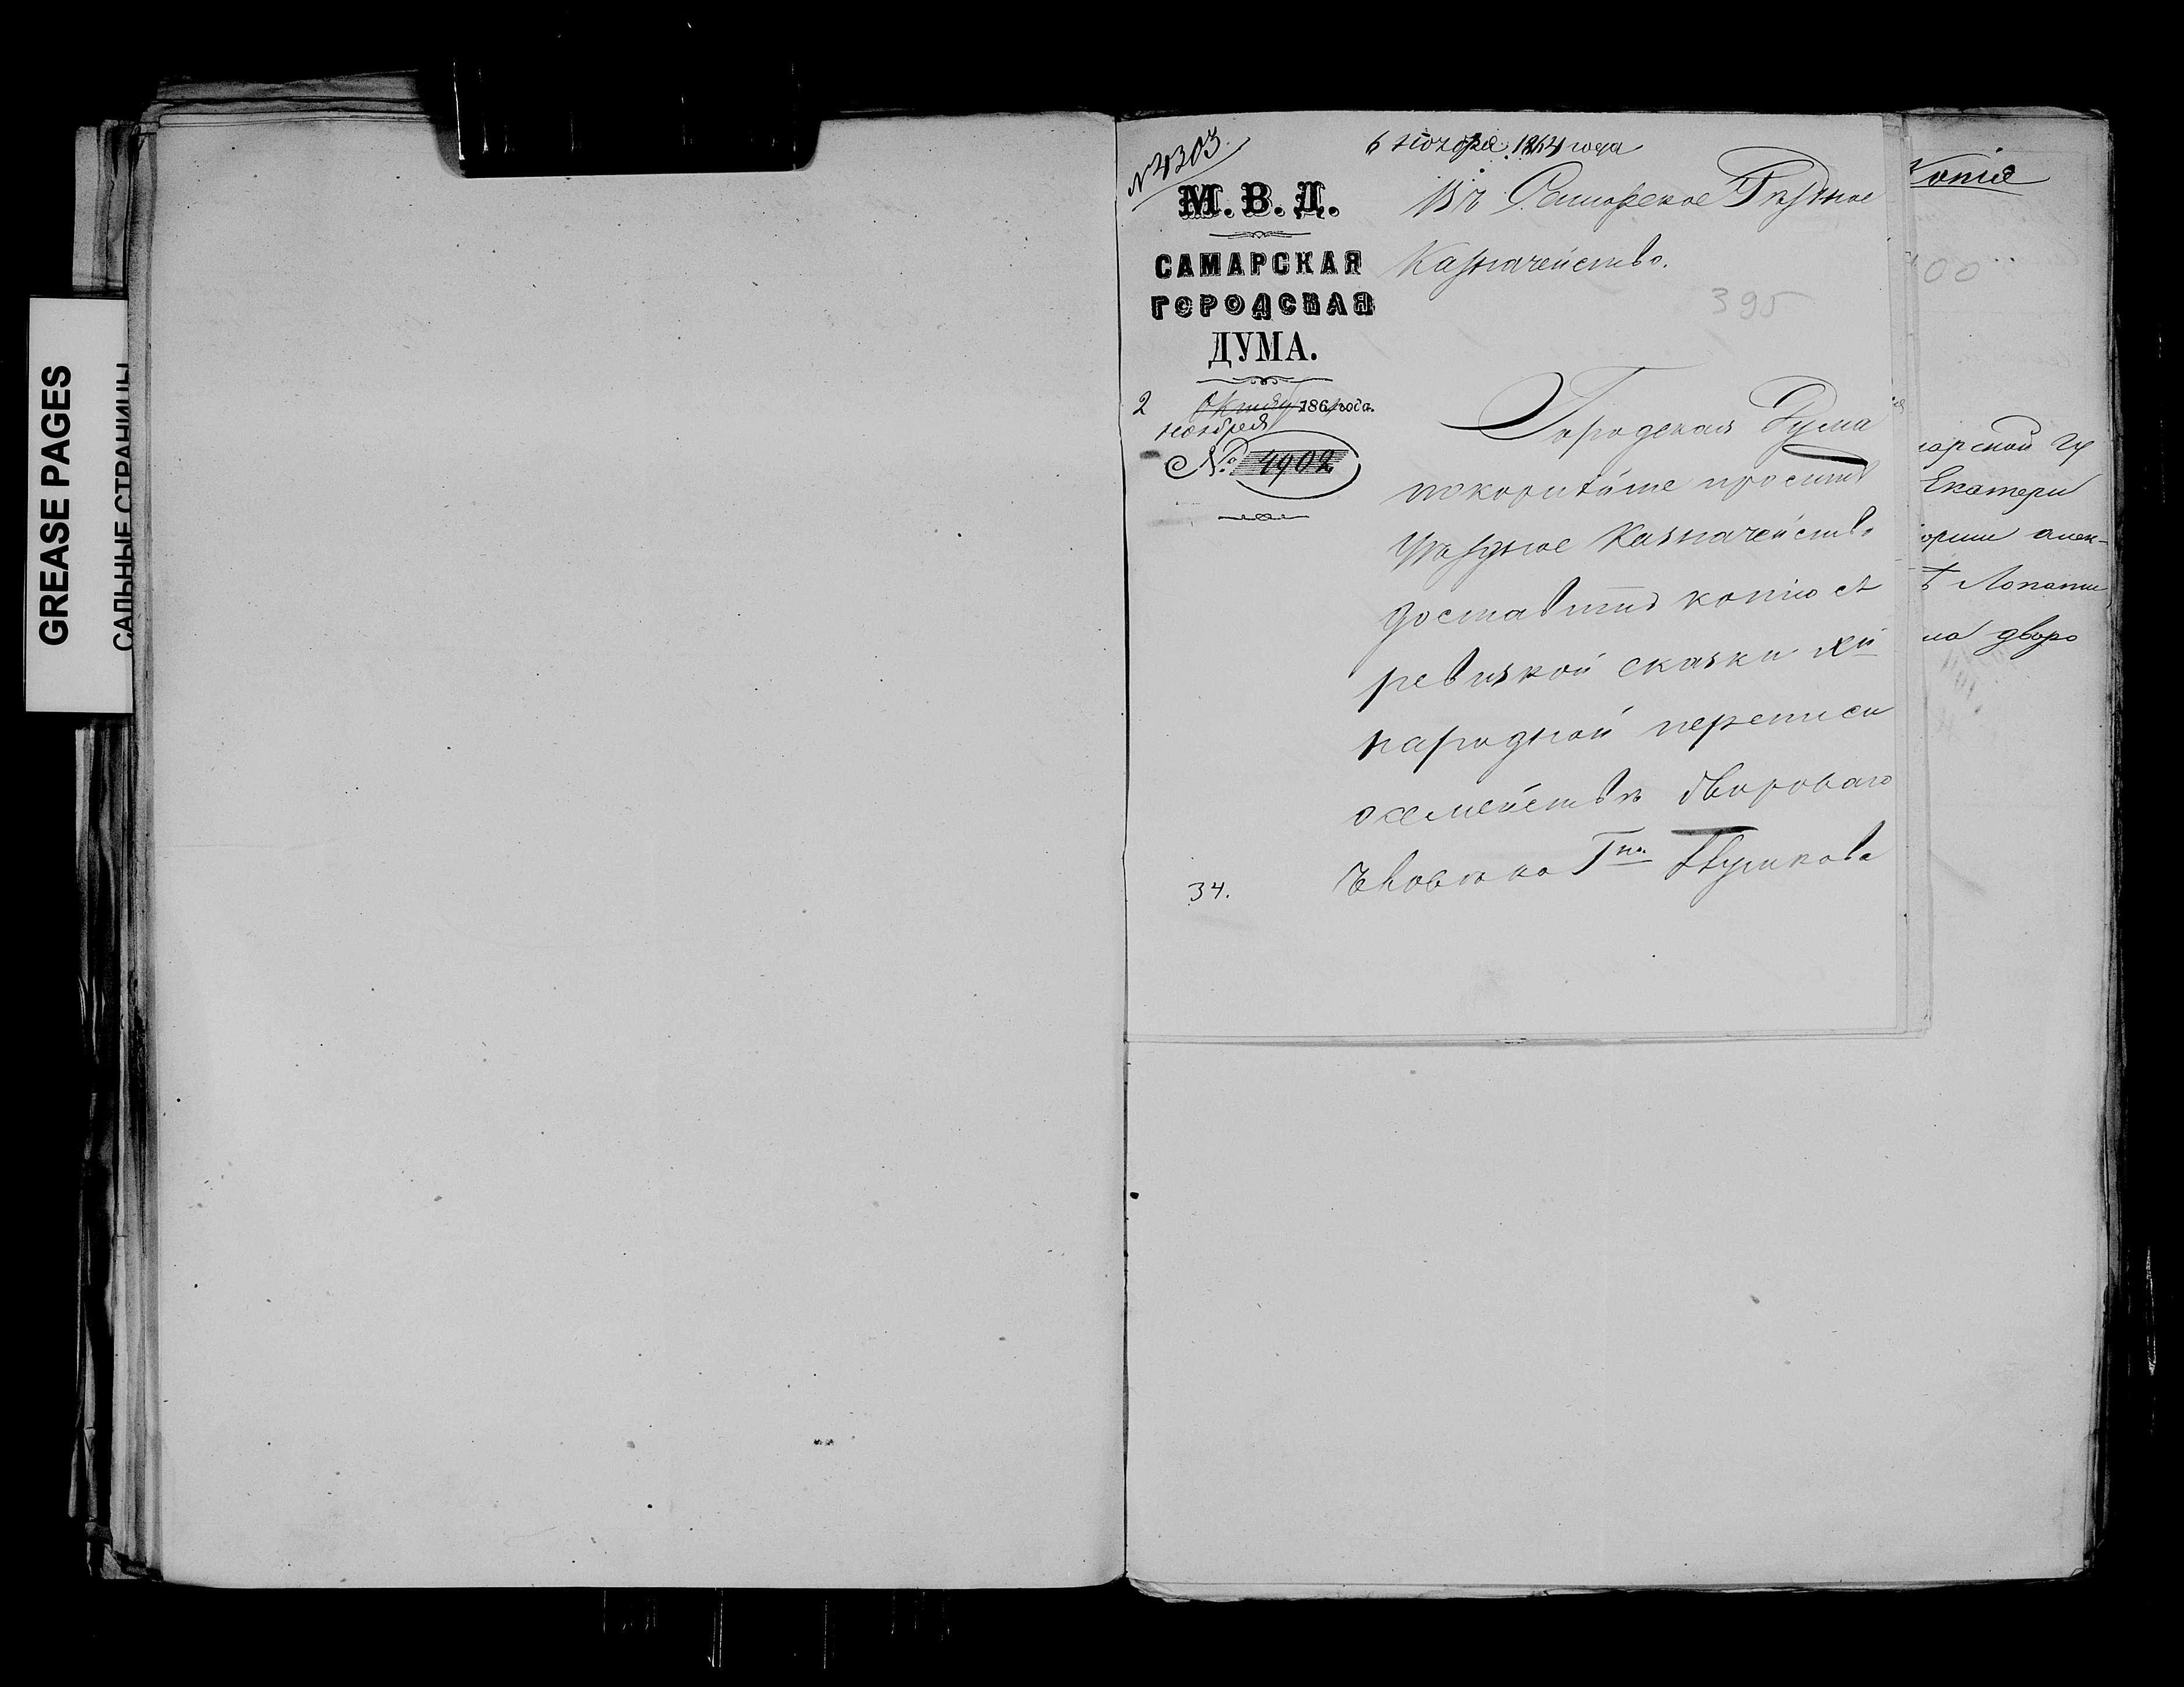 GREASE PAGES
САЛЬНЫЕ СТРАНИЦЫ
№ 4303
6 Ноября 1864 года
М. В. Д.
САМАРСКАЯ
ГОРОДСКАЯ
ДУМА.
2 Октября 1864 года.
ноября
№ 4902
Въ Самарское Уѣздное
Казначейство.
395
Городская Дума
покорнѣйше проситъ
Уѣздное Казначейство
доставить копію съ
ревизкой сказки
народной переписи
о семействѣ двороваго
человѣка Гна Пушкова
34.
Копія
400
марской гу
Екатери
Лопати
дворо